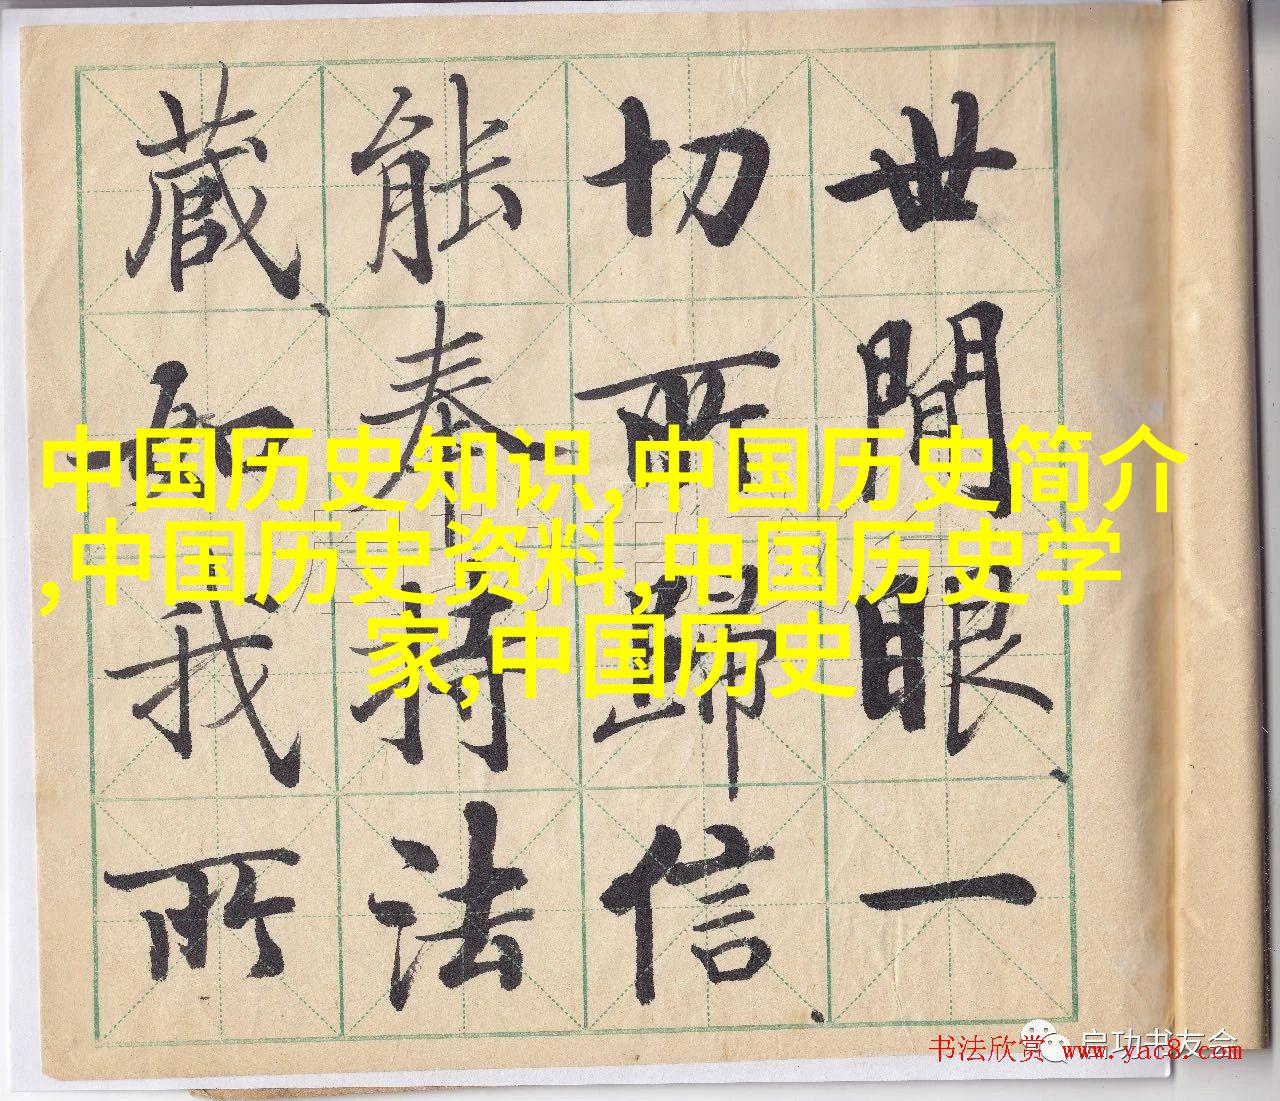 世間眼一
切所歸信
能奉持法
藏如我所
中国历史知识,中国历史简介
,中国历史资料,中国历史学
家,中国历史
启功书友会
书法欣赏 www.yac8.com